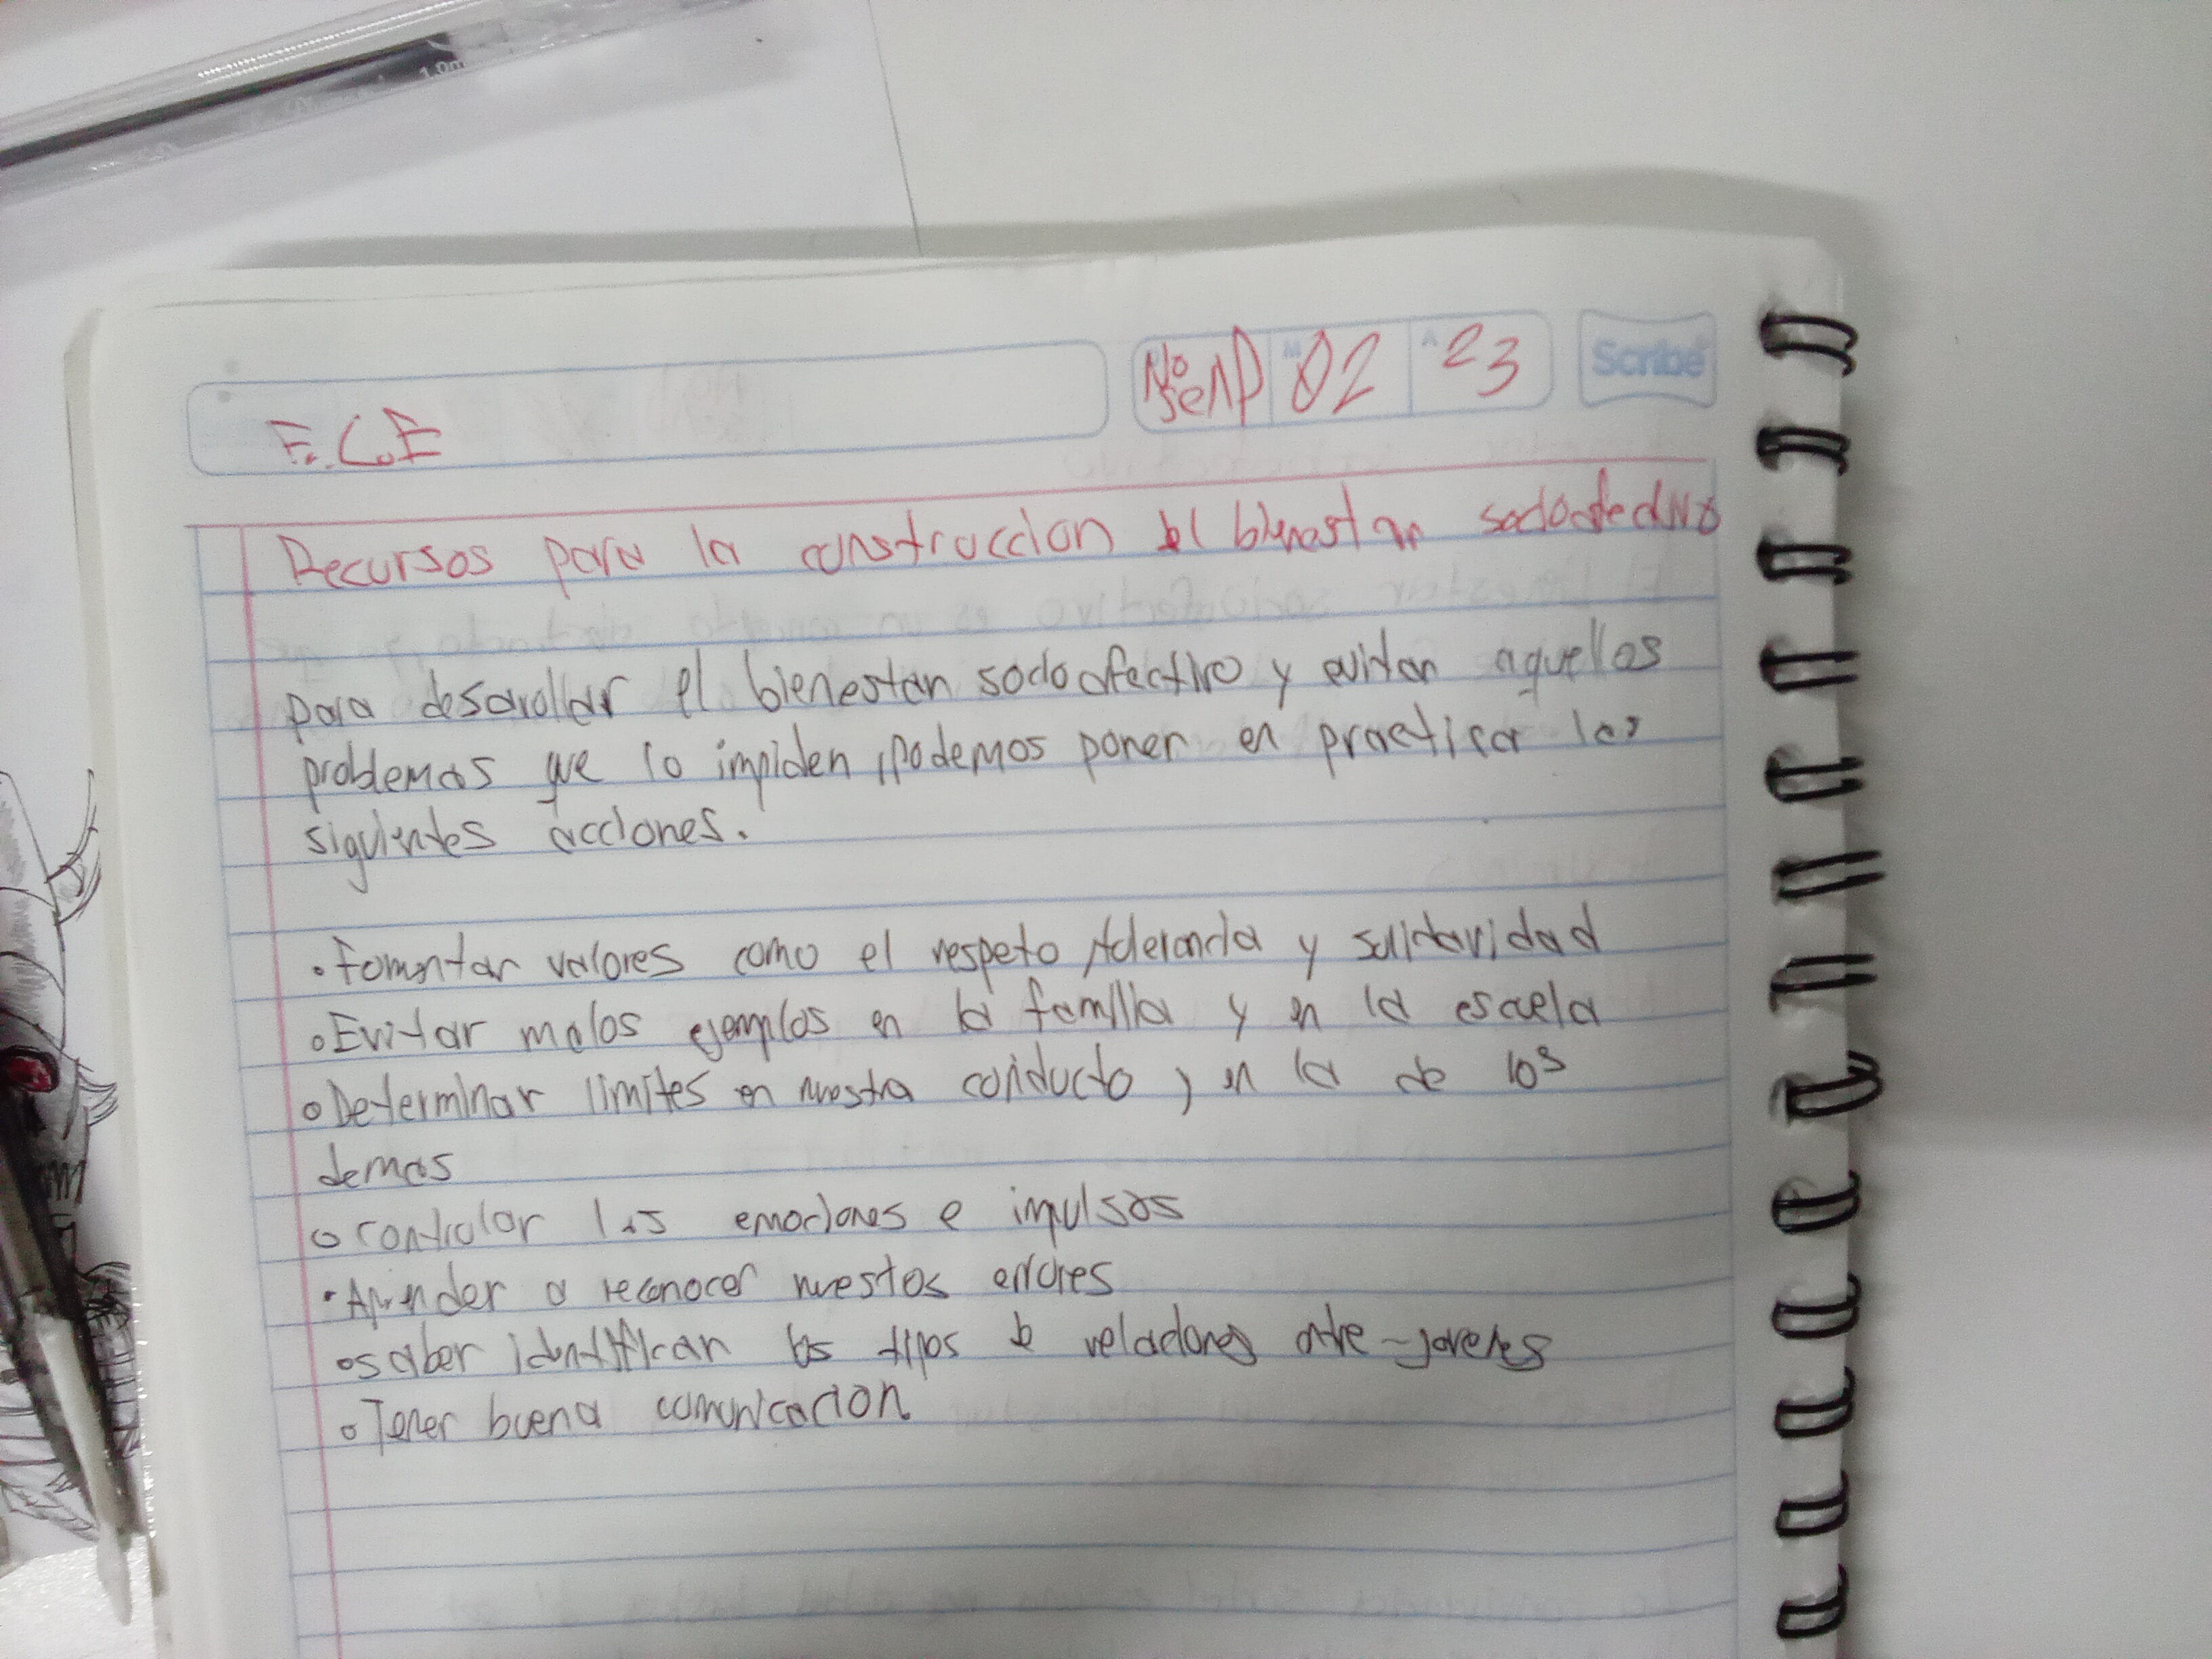 1.0m
F.C.E
No se AP 02 23
Scribe
Recursos para la construccion del bienestar socioafectivo
para desarollar el bienestar socioafectivo y evitar aquellos
problemas que lo impiden, podemos poner en practica las
siguientes acciones.
• Fomentar valores como el respeto, tolerancia y solidaridad
• Evitar malos ejemplos en la familia y en la escuela
• Determinar limites en nuestra conducta y en la de los
demas
• controlar las emociones e impulsos
• Aprender a reconocer nuestos errores
• saber identificar los tipos de relaciones entre jovenes
• Tener buena comunicacion